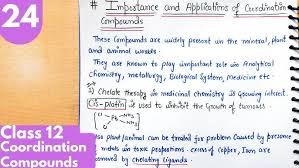 24
Class 12
Coordination
Compounds
# Importance and Applications of Coordination
Compounds
These Compounds are widely present in the mineral, plant
and animal worlds.
They are known to play important role in Analytical
Chemistry, metallurgy, Biological System, Medicine etc
2) Chelate therapy in medicinal chemistry is growing interest
Cis-platin is used to inhibit the Growth of tumours
Cl Pt NH3
Cl NH3
plant/animal can be treated for problem Caused by presence
metals in toxic propositions. excess of Copper, Iron are
removed by chelating ligands